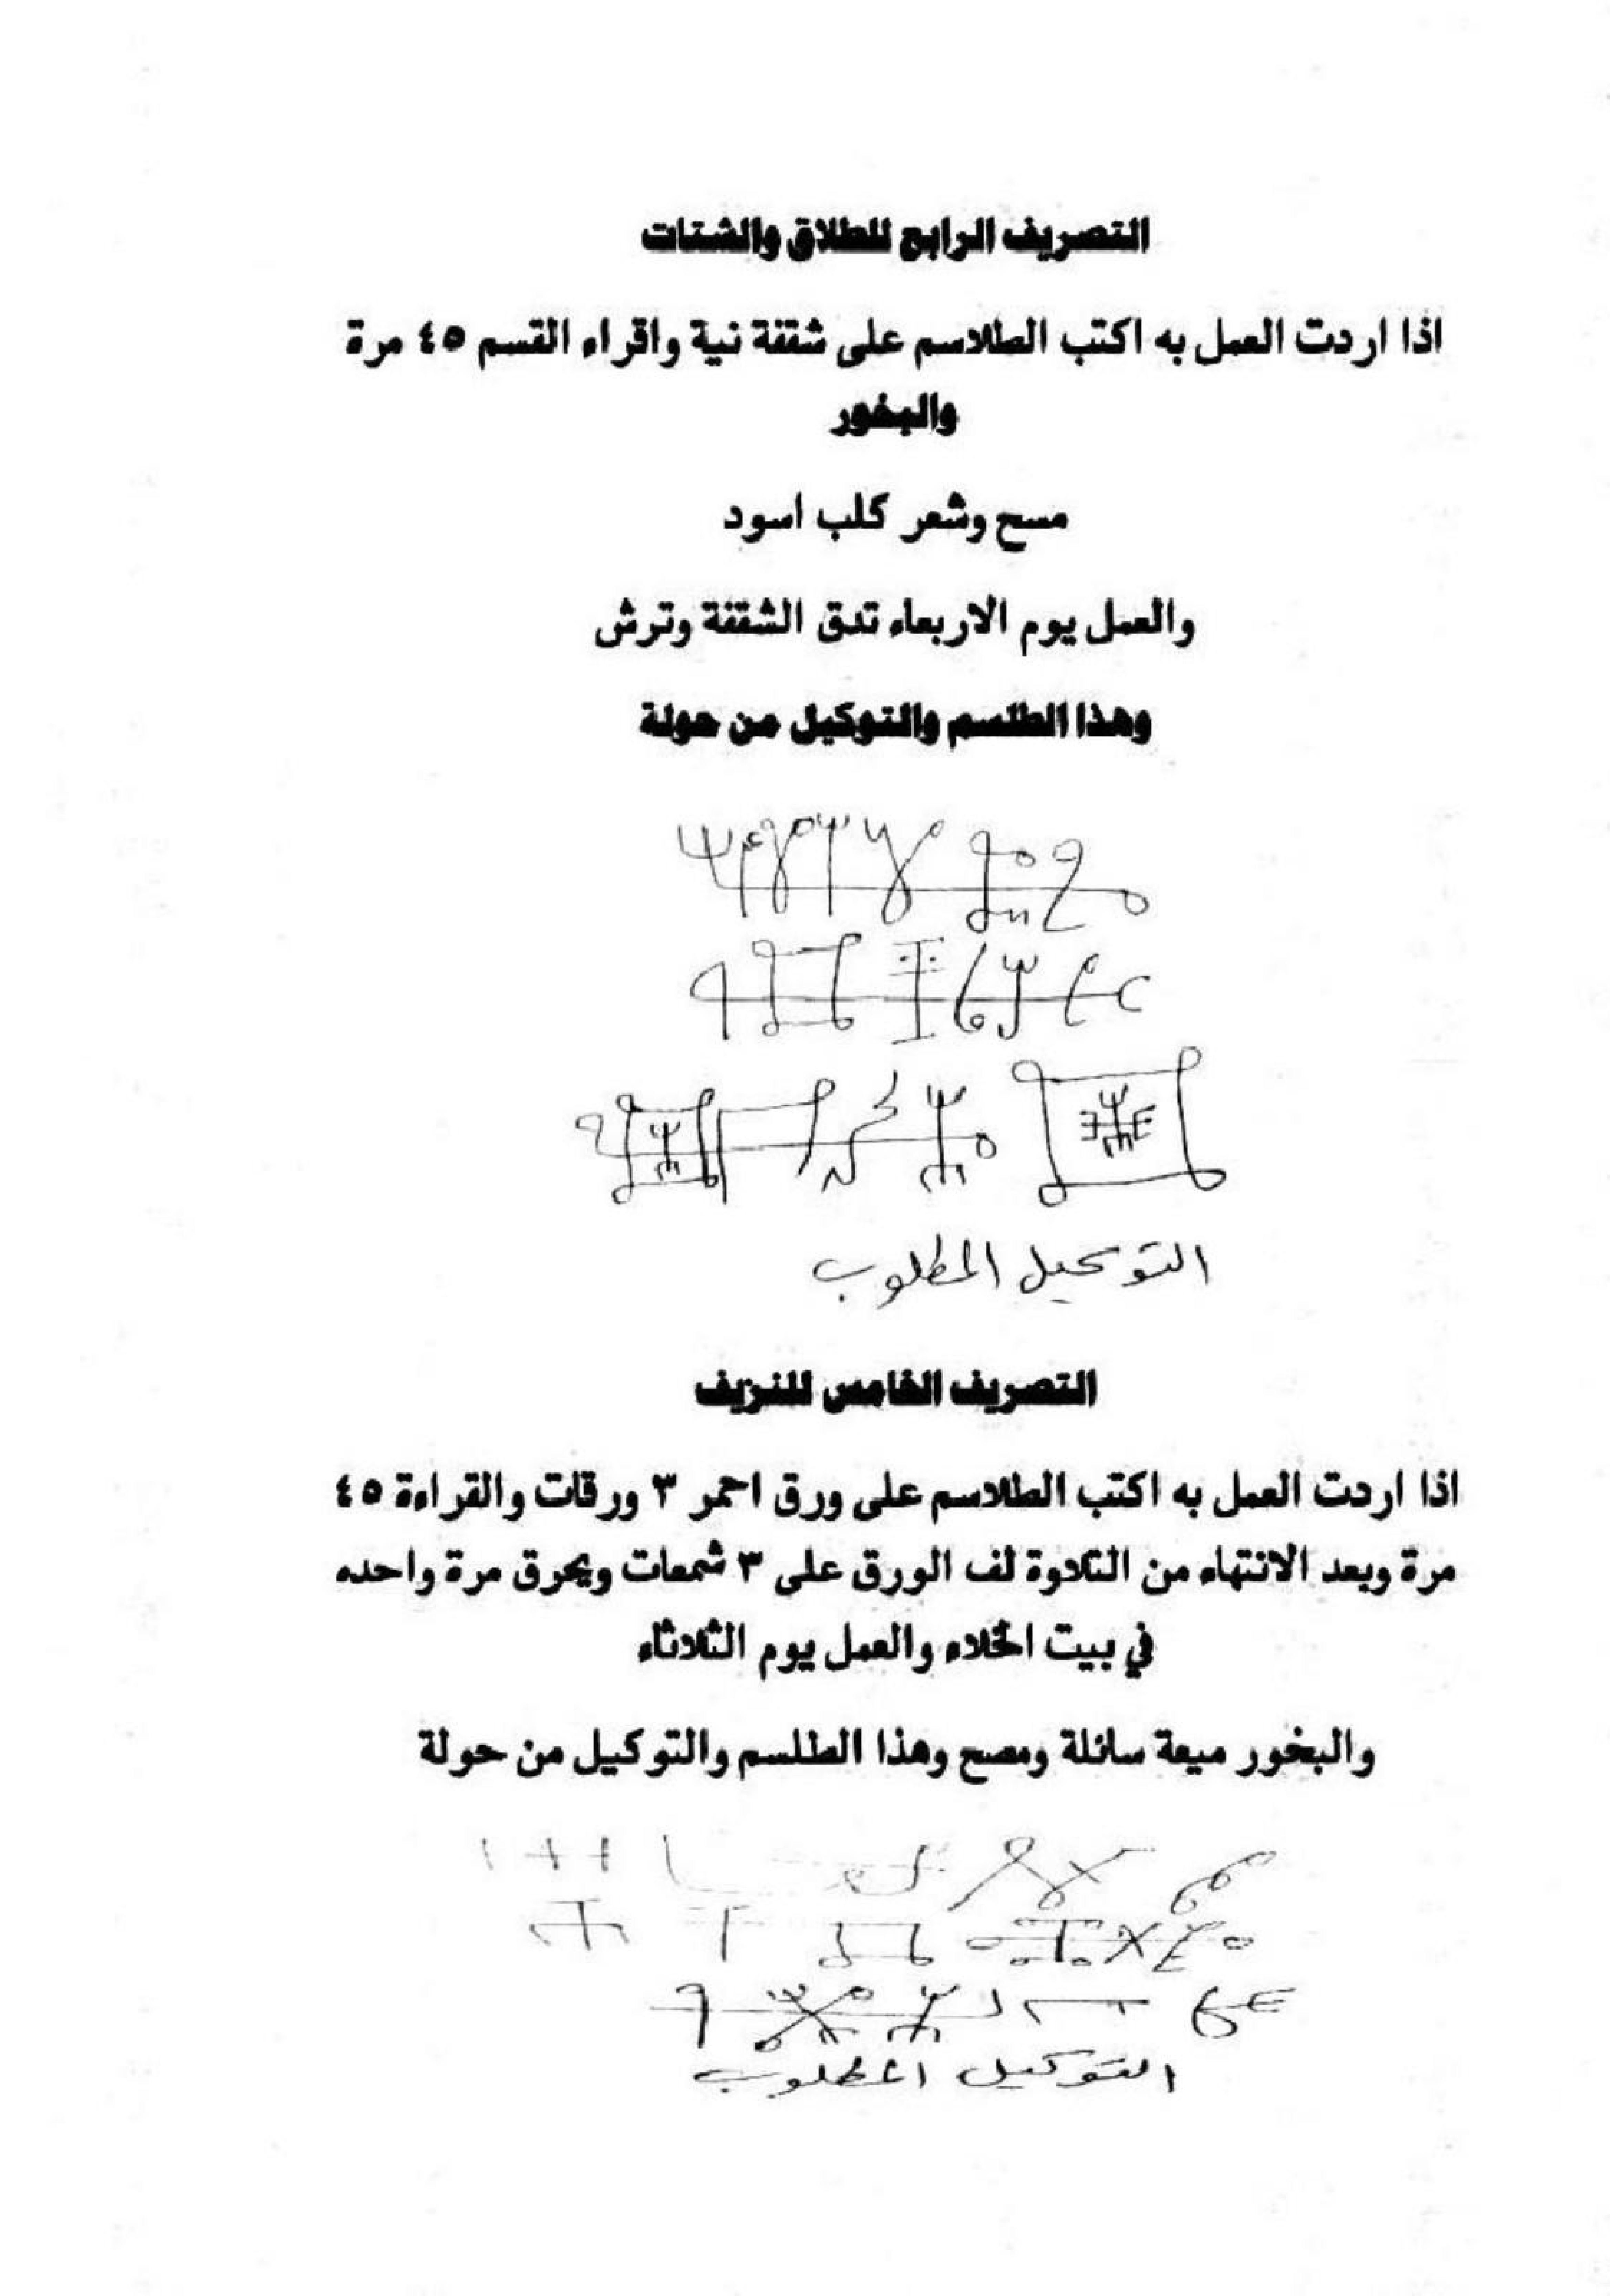 التصريف الرابع للطلاق والشتات
اذا اردت العمل به اكتب الطلاسم على شقفة نية واقراء القسم ٤٥ مرة
والبخور
مسح وشعر كلب اسود
والعمل يوم الاربعاء تدق الشقفة وترش
وهذا الطلسم والتوكيل من حولة
التوكيل المطلوب
التصريف الخامس للنزيف
اذا اردت العمل به اكتب الطلاسم على ورق احمر ٣ ورقات والقراءة ٤٥
مرة وبعد الانتهاء من التلاوة لف الورق على ٣ شمعات ويحرق مرة واحده
في بيت الخلاء والعمل يوم الثلاثاء
والبخور ميعة سائلة ومصح وهذا الطلسم والتوكيل من حولة
التوكيل المطلوب